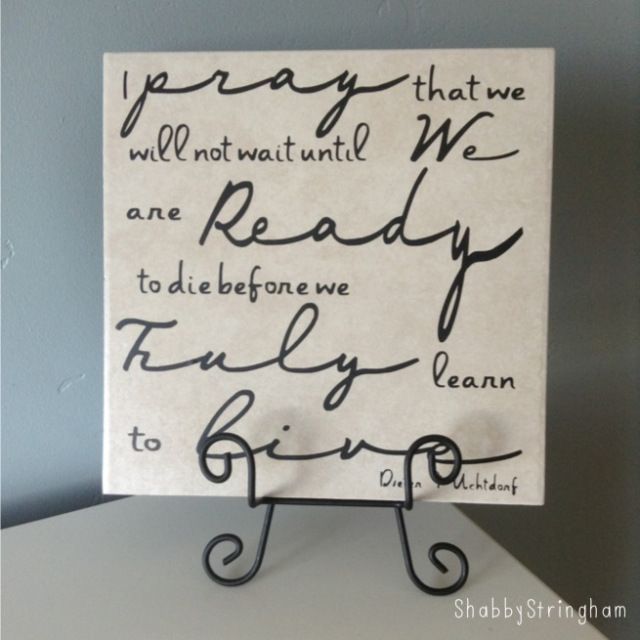 I pray that we
will not wait until We
are Ready
to die before we
Truly learn
to Live
Uchtdorf
ShabbyStringham